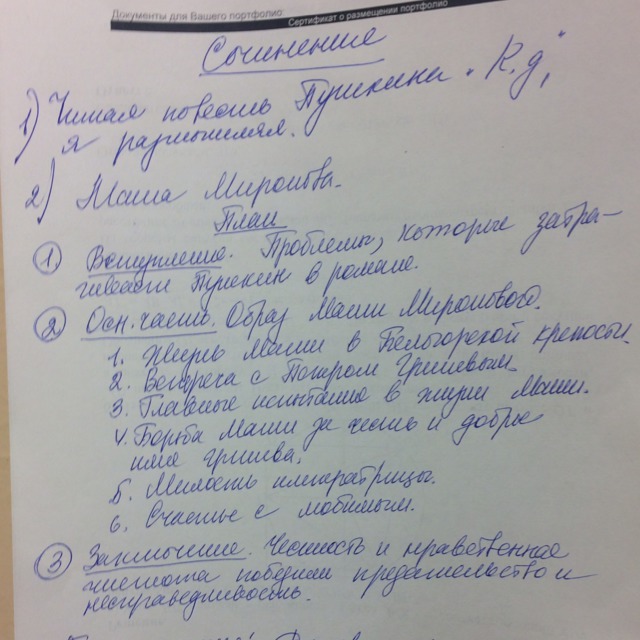 Документы для Вашего портфолио:
Сертификат о размещении портфолио
Сочинение
1) Читая повесть Пушкина "К.д",
я размышлял.
2) Маша Миронова.
План
1 Вступление. Проблемы, которые затра-
гивает Пушкин в романе.
2 Осн. часть. Образ Маши Мироновой.
1. Жизнь Маши в Белогорской крепости.
2. Встреча с Петром Гриневым.
3. Главные испытание в жизни Маши.
4. Борьба Маши за честь и доброе
имя Гринёва.
5. Милость императрицы.
6. Счастье с любимым.
3 Заключение. Честность и нравственная
чистота победили предательство и
несправедливость.